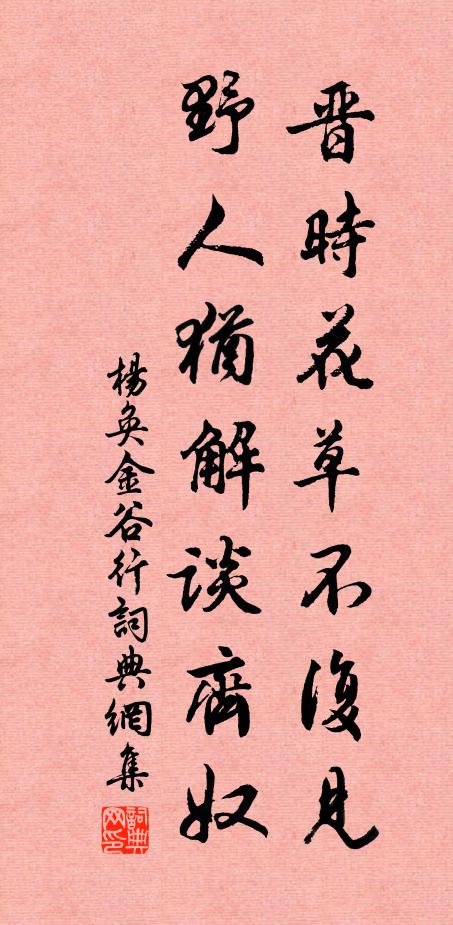 晋時花草不復見
野人猶解談齊奴
楊奐金谷行詞典網集
詞典网印